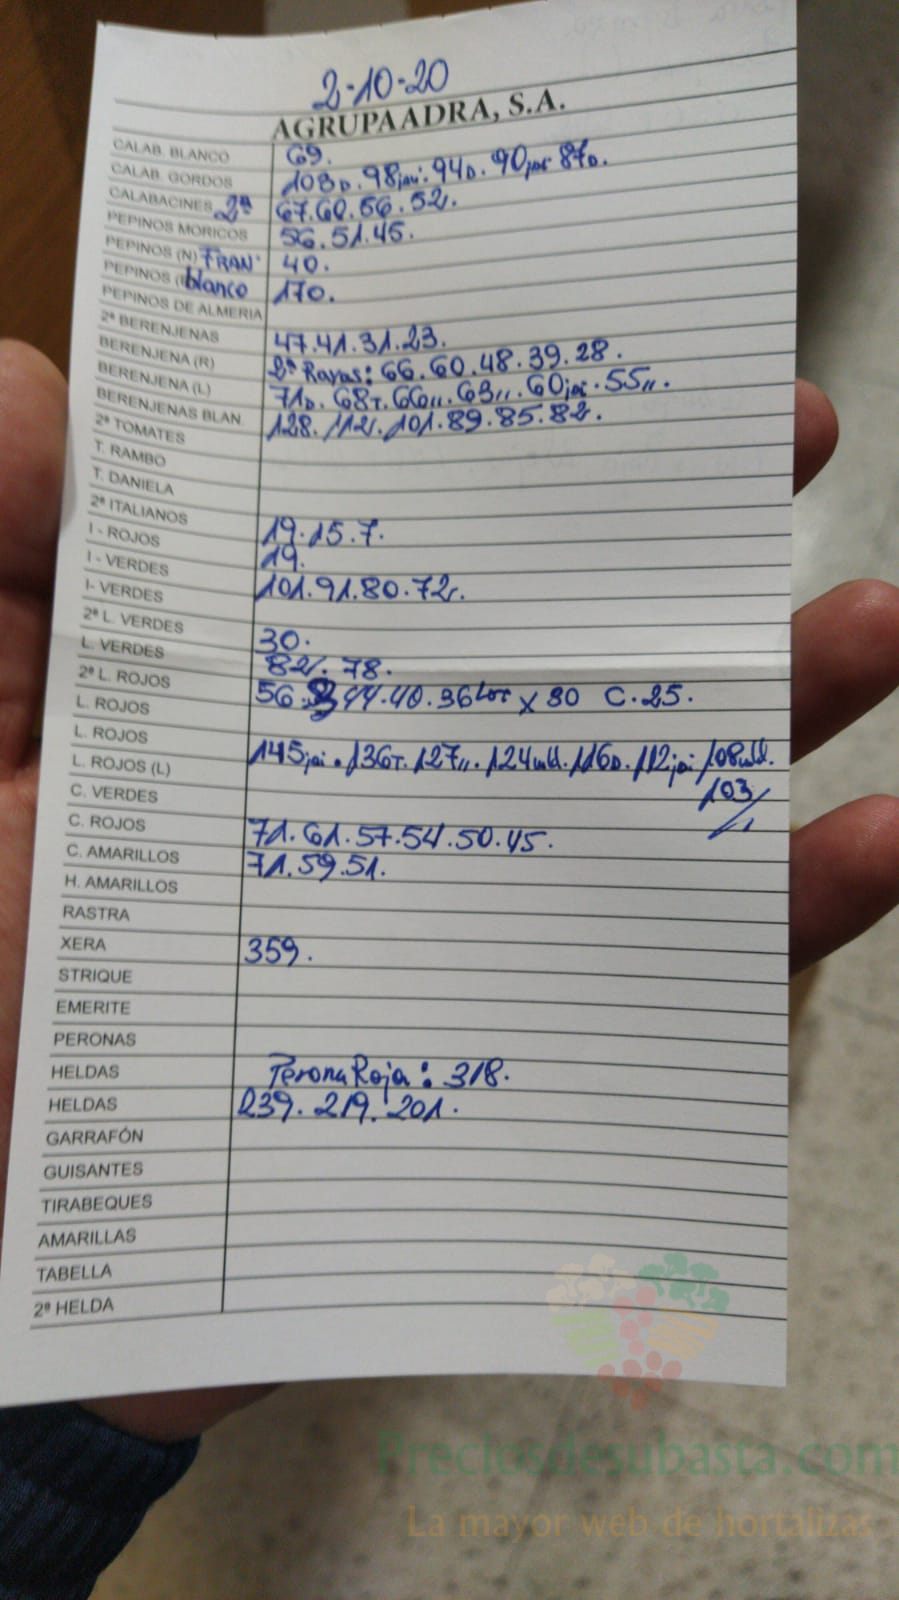 2-10-20
AGRUPAADRA, S.A.
CALAB. BLANCO 69.
CALAB. GORDOS 103D. 98jai. 94D. 90jai 87D.
CALABACINES 2ª 67.60.56.52.
PEPINOS MORICOS 56.51.45.
PEPINOS (N) FRAN. 40.
PEPINOS blanco 170.
PEPINOS DE ALMERIA
2ª BERENJENAS 47.41.31.23.
BERENJENA (R) 2ª Rayas: 66.60.48.39.28.
BERENJENA (L) 71D. 68T. 66,,. 63,,. 60jai. 55,,.
BERENJENAS BLAN. 128. 112. 101. 89. 85. 82.
2ª TOMATES
T. RAMBO
T. DANIELA
2ª ITALIANOS 19.15.7.
I - ROJOS 19.
I - VERDES 101.91.80.72.
I- VERDES
2ª L. VERDES 30.
L. VERDES 82. 78.
2ª L. ROJOS 56. 44.40.36 Lot x 80 C.25.
L. ROJOS
L. ROJOS 145jai. 136T. 127,,. 124 116D. 112jai 108
L. ROJOS (L) 103
C. VERDES
C. ROJOS 71.61.57.54.50.45.
C. AMARILLOS 71.59.51.
H. AMARILLOS
RASTRA
XERA 359.
STRIQUE
EMERITE
PERONAS
HELDAS Perona Roja: 318.
HELDAS 239. 219. 201.
GARRAFÓN
GUISANTES
TIRABEQUES
AMARILLAS
TABELLA
2ª HELDA
Preciosdesubasta.com
La mayor web de hortalizas